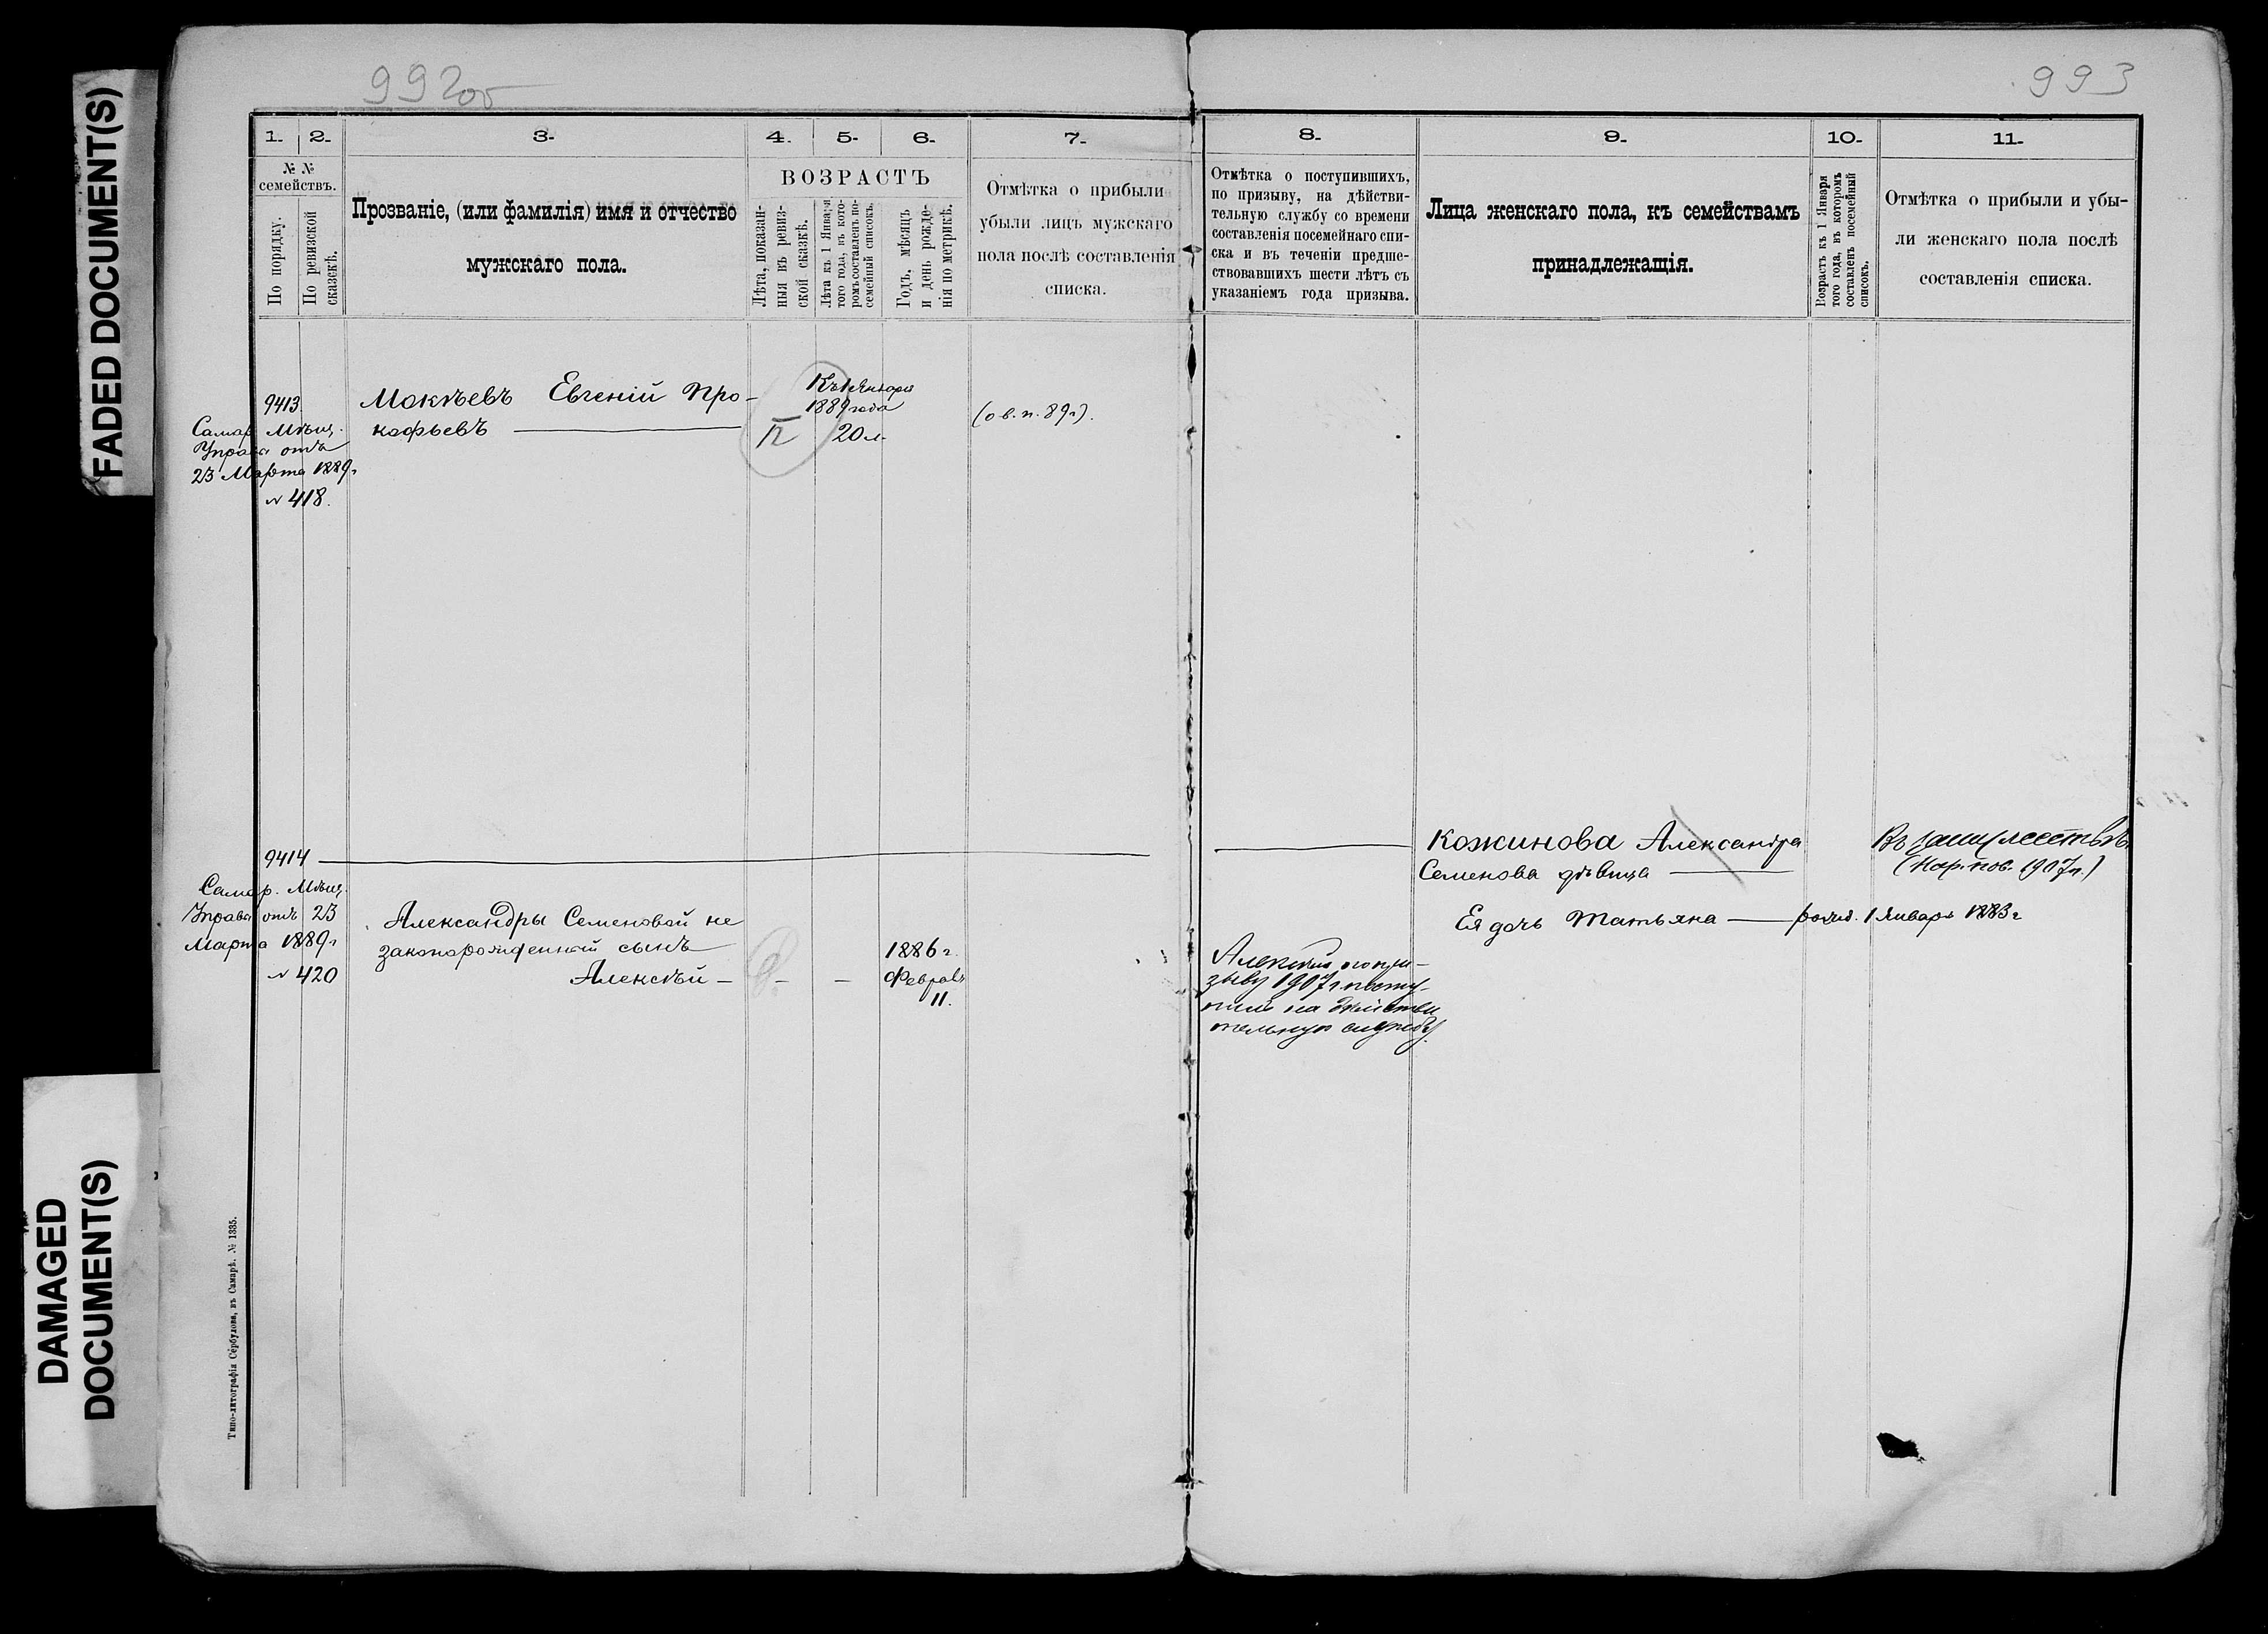 FADED DOCUMENT(S)
DAMAGED
DOCUMENT(S)
992об
993
1.
2.
3.
4.
5.
6.
7.
8.
9.
10.
11.
№ №
семействъ.
По порядку.
По ревизской
сказкѣ.
Прозваніе, (или фамилія) имя и отчество
мужскаго пола.
ВОЗРАСТЪ
Лѣта, показан-
ныя въ ревиз-
ской сказкѣ.
Лѣта къ 1 Января
того года, въ кото-
ромъ составленъ по-
семейный списокъ.
Годъ, мѣсяцъ
и день рожде-
нія по метрикѣ.
Отмѣтка о прибыли
убыли лицъ мужскаго
пола послѣ составленія
списка.
Отмѣтка о поступившихъ,
по призыву, на дѣйстви-
тельную службу со времени
составленія посемейнаго спи-
ска и въ теченіи предше-
ствовавшихъ шести лѣтъ съ
указаніемъ года призыва.
Лица женскаго пола, къ семействамъ
принадлежащія.
Возрастъ къ 1 Января
того года, въ которомъ
составленъ посемейный
списокъ.
Отмѣтка о прибыли и убы-
ли женскаго пола послѣ
составленія списка.
9413
Самар. Мѣщ.
Управа отъ
23 Марта 1889 г
№ 418.
Мокѣевъ Евгеній Про-
кофьевъ
Къ 1 Января
1889 года
20 л.
(о в. п. 89 г.).
9414
Самар. Мѣщ.
Управа отъ 23
Марта 1889 г
№ 420
Александры Семеновой не
законорожденный сынъ
Алексѣй — - —
1886 г.
Февраль
11.
Алексѣй по при-
зыву 1907 г. посту-
пилъ на дѣйстви
тельную службу.
Кожинова Александра
Семенова дѣвица
Ея дочь Татьяна — рожд. 1 Января 1883 г
Въ замужествѣ
(пов. 1907 г.)
Типо-литографія Сербулова, въ Самарѣ. № 1335.